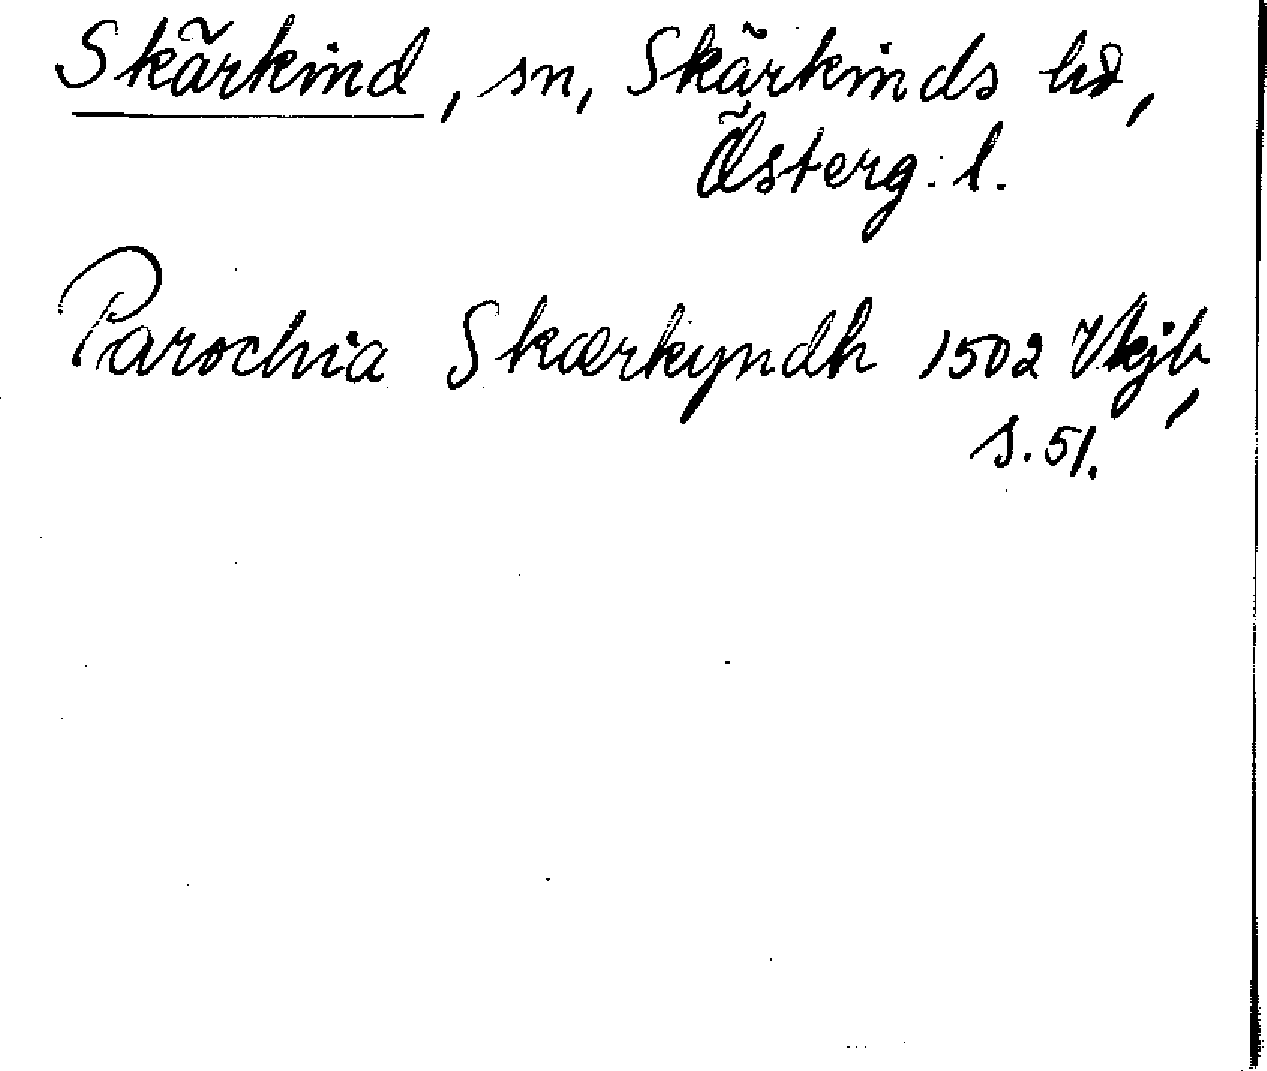 Skärkind, sn, Skärkinds hd,
Österg. l.
Parochia Skærkyndh 1502 Vkjb,
s. 51.